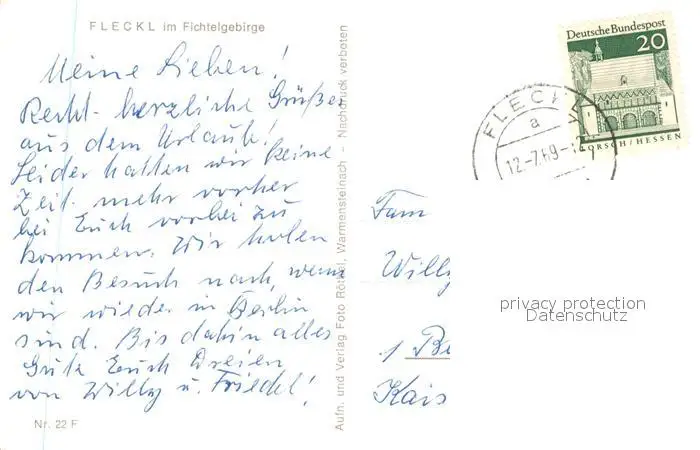 FLECKL im Fichtelgebirge
Meine Lieben!
Recht herzliche Grüße
aus dem Urlaub!
Leider hatten wir keine
Zeit mehr vorher
bei Euch vorbei zu
kommen. Wir holen
den Besuch nach, wenn
wir wieder in Berlin
sind. Bis dahin alles
Gute Euch Dreien
von Willy u. Friedel!
Nr. 22 F
Aufn. und Verlag Foto Warmensteinach - Nachdruck verboten
Deutsche Bundespost
20
LORSCH/HESSEN
FLECKL
a
12-7.69-
Fam
Willy
1 Be
Kais
privacy protection
Datenschutz